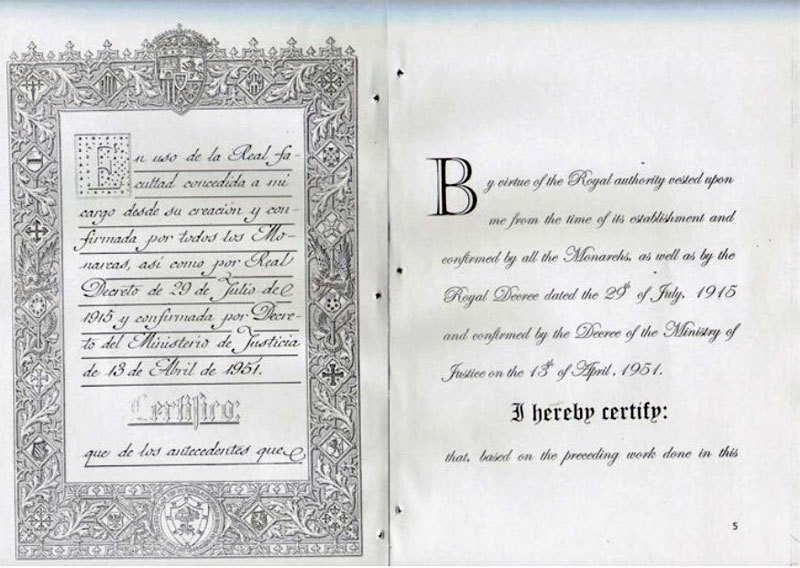 En uso de la Real fa-
cultad concedida a mi
cargo desde su creación y con-
firmada por todos los Mo-
narcas, así como por Real
Decreto de 29 de Julio de
1915 y confirmada por Decre-
to del Ministerio de Justicia
de 13 de Abril de 1951.
Certifico:
que de los antecedentes que
By virtue of the Royal authority vested upon
me from the time of its establishment and
confirmed by all the Monarchs, as well as by the
Royal Decree dated the 29th of July, 1915
and confirmed by the Decree of the Ministry of
Justice on the 13th of April, 1951.
I hereby certify:
that, based on the preceding work done in this
5